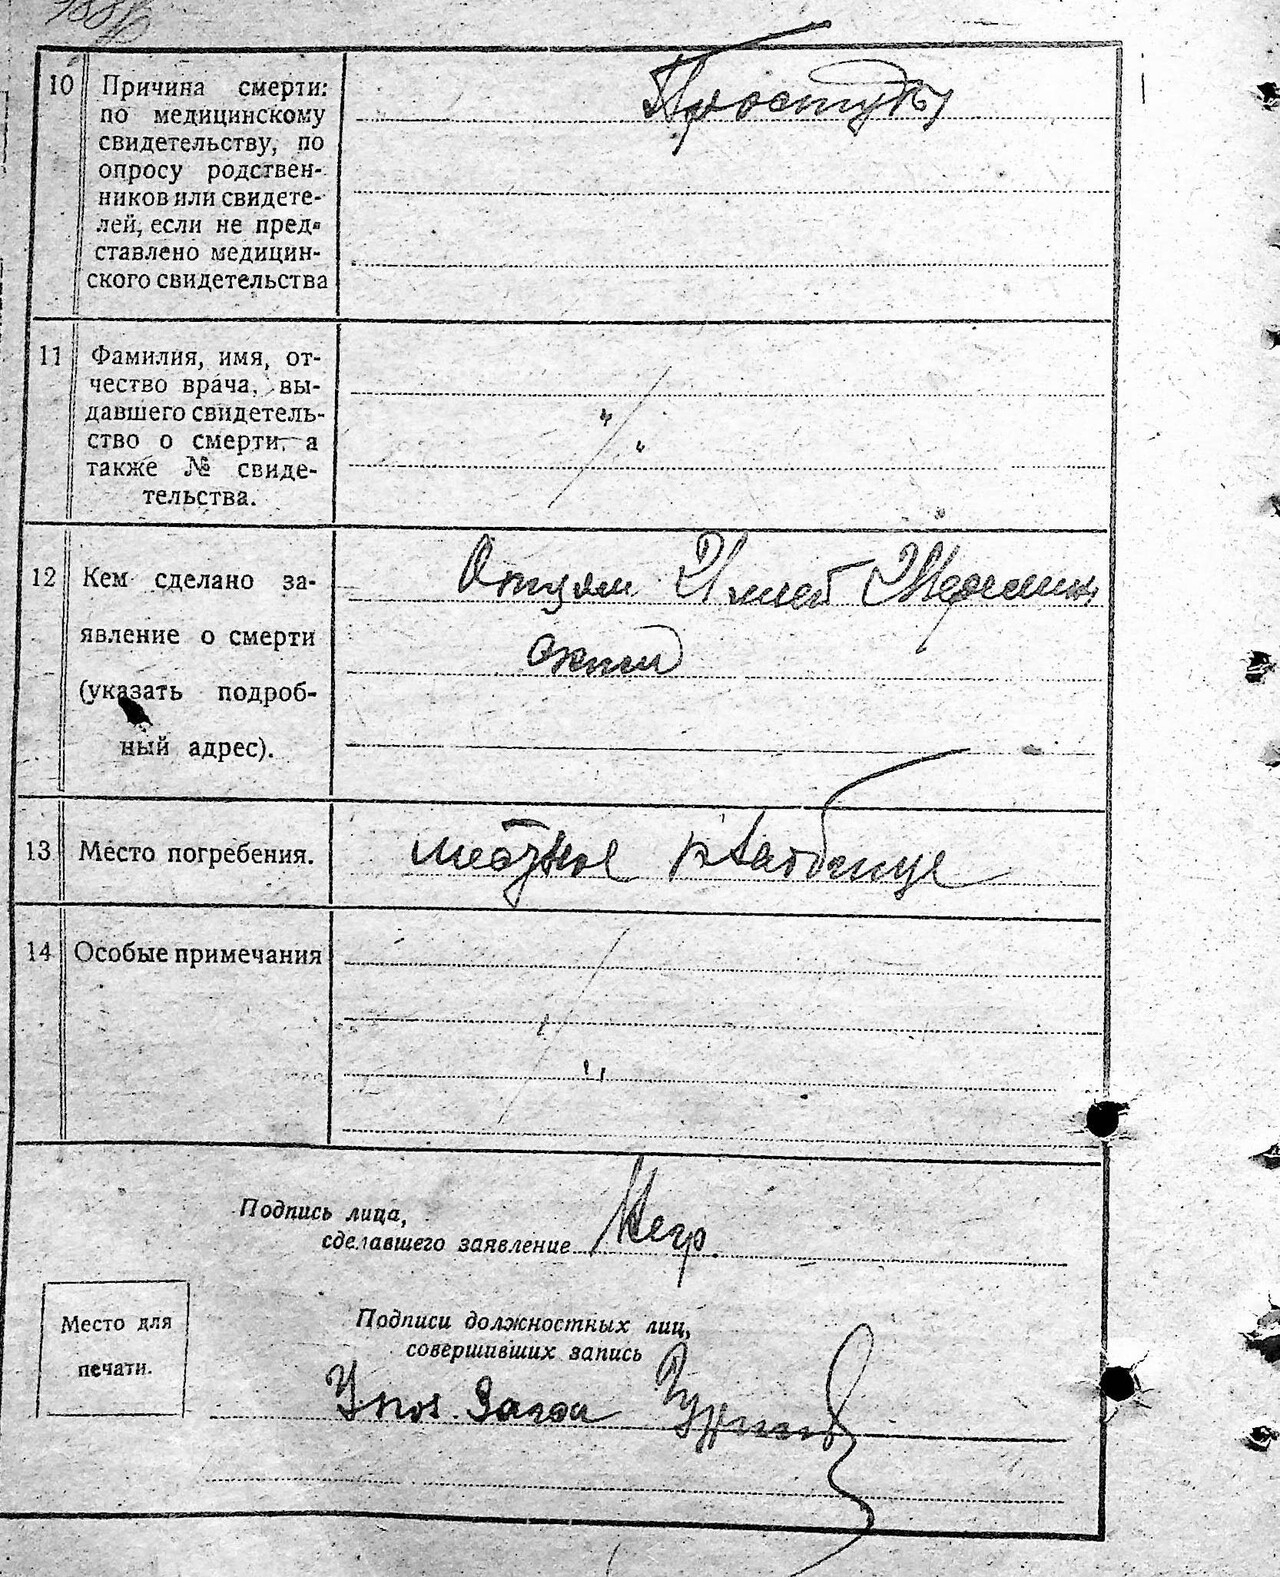 10 Причина смерти: Простуды
по медицинскому
свидетельству, по
опросу родствен-
ников или свидете-
лей, если не пред-
ставлено медицин-
ского свидетельства
11 Фамилия, имя, от-
чество врача, вы-
давшего свидетель-
ство о смерти, а
также № свиде-
тельства.
12 Кем сделано за-
явление о смерти
(указать подроб-
ный адрес).
Отцом
13 Место погребения. местное кладбище
14 Особые примечания
Подпись лица,
сделавшего заявление Негр.
Подписи должностных лиц,
совершивших запись
Место для
печати.
Упол. Загса